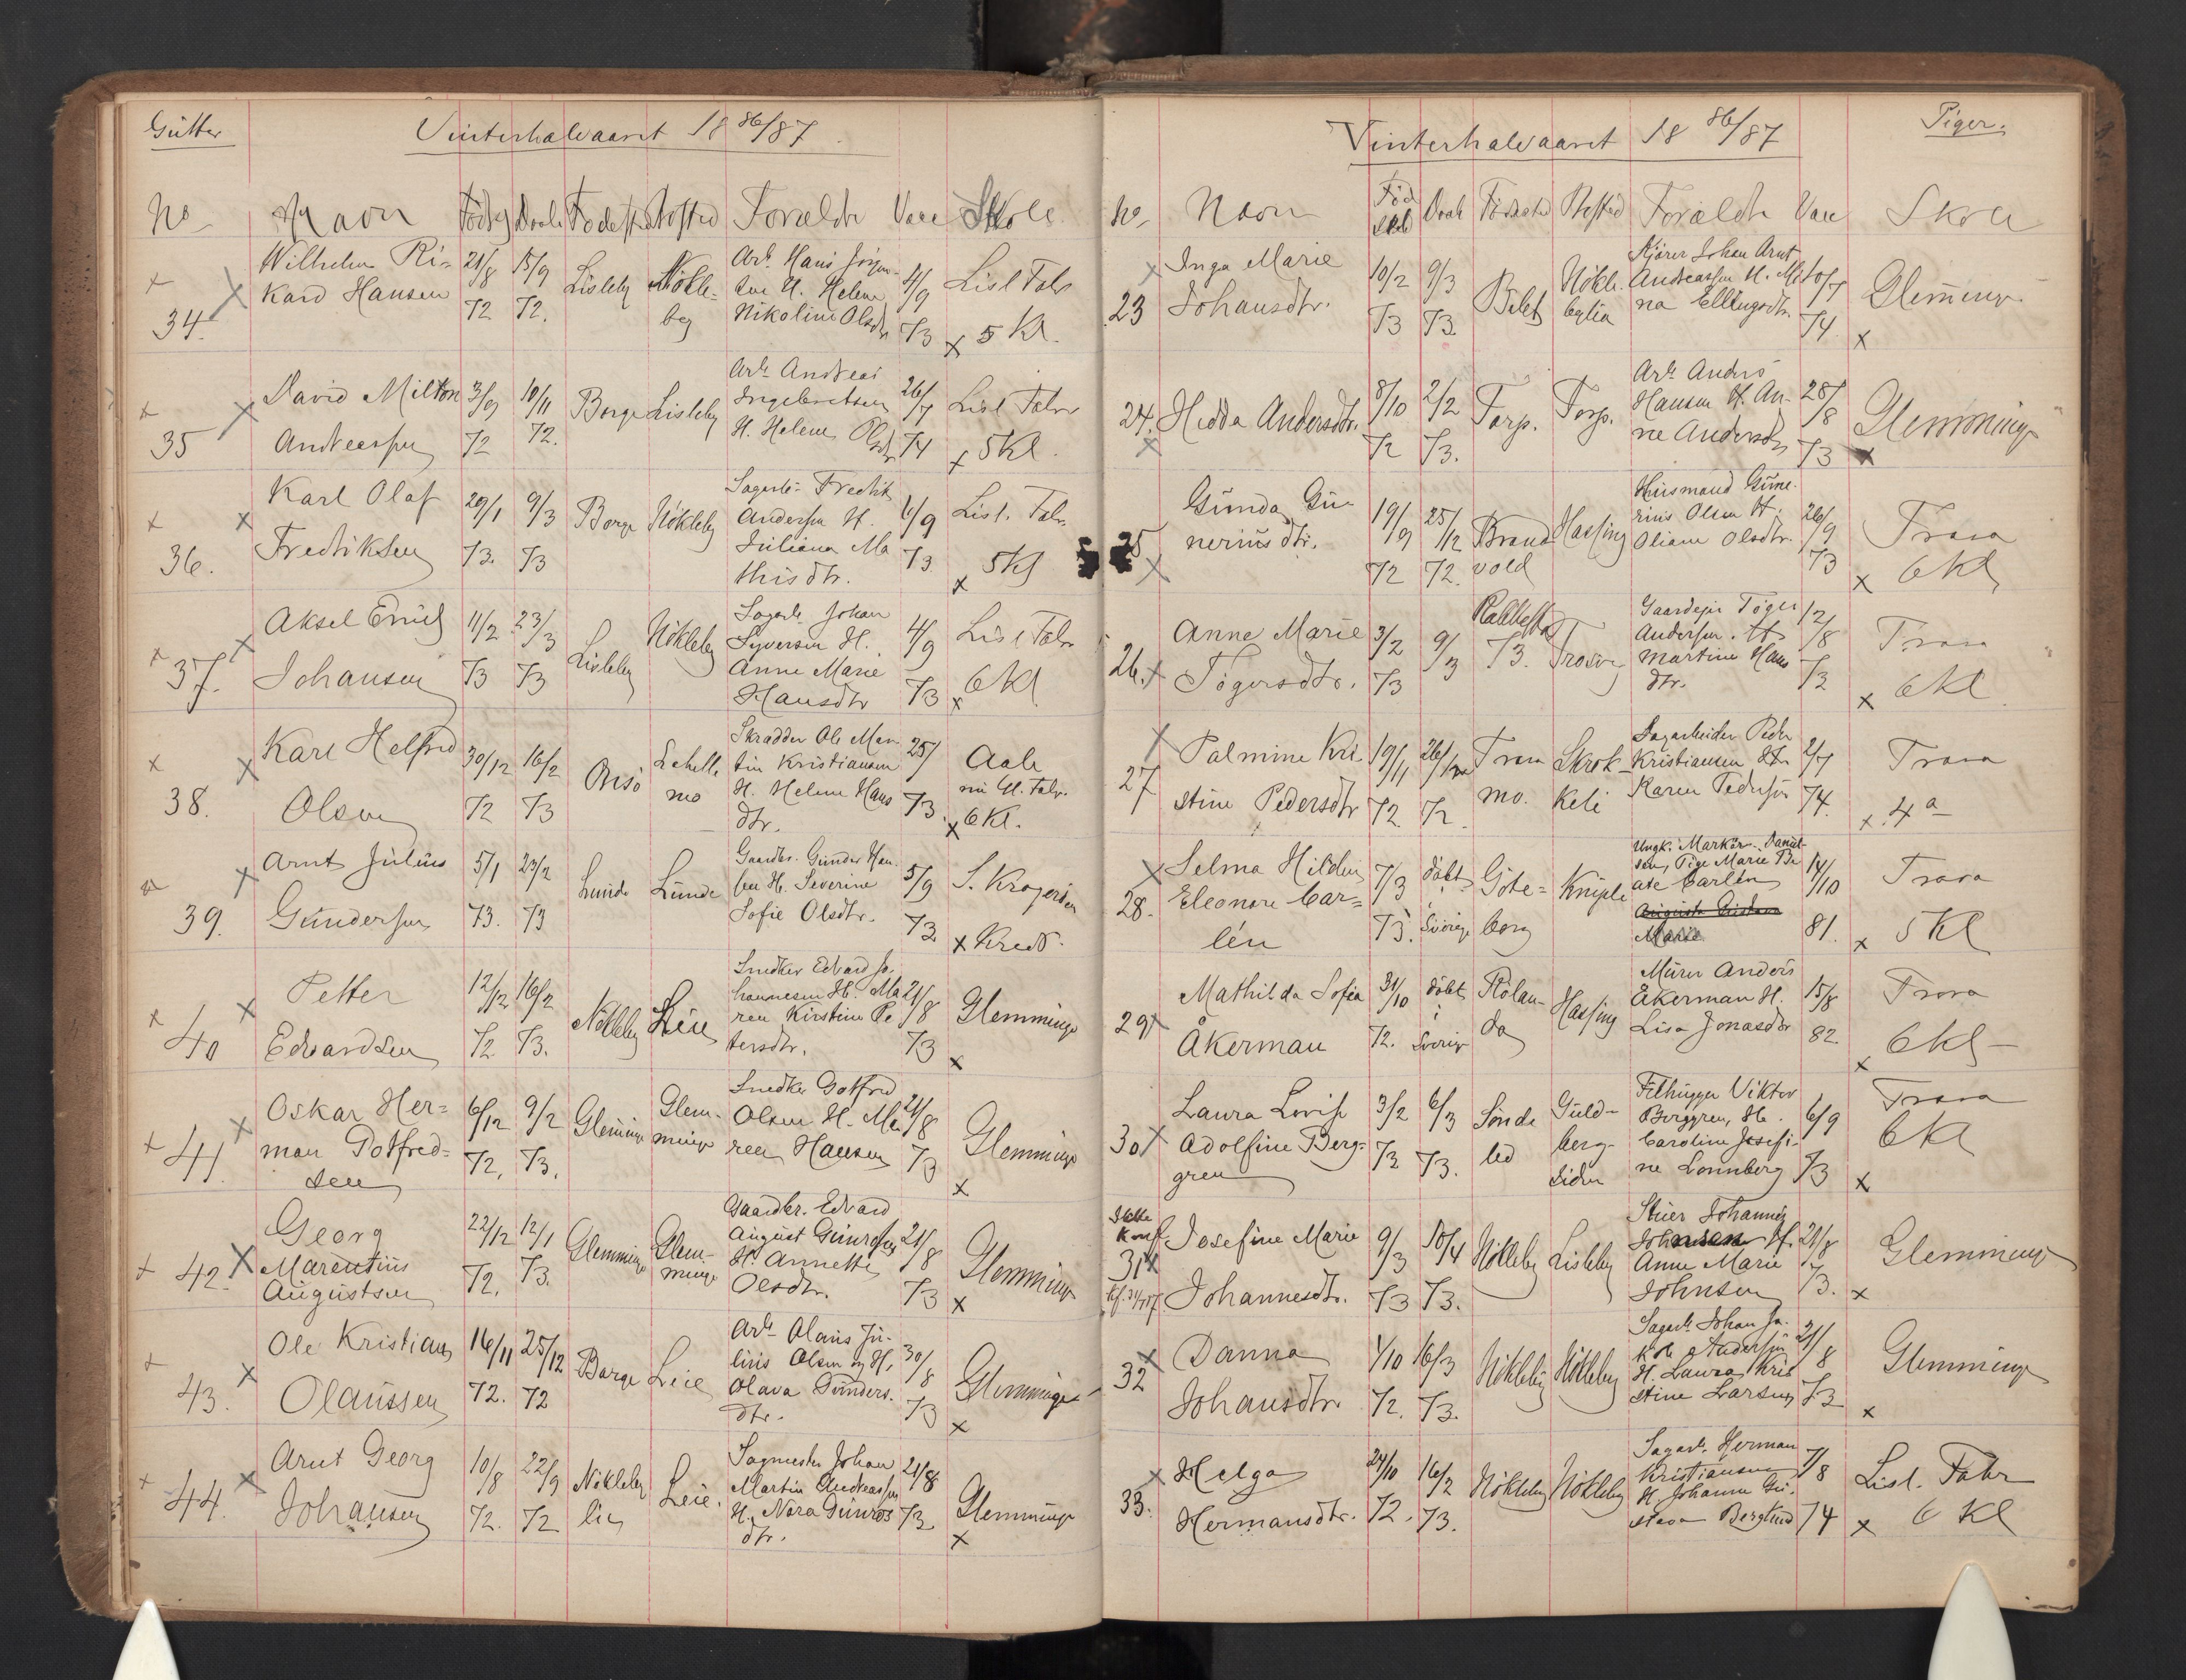 Gutter
Vinterhalvaaret 18 86/87
No Navn Födsg Daab Födested Bosted Forældre Vacc Skole
34. Wilhelm Ri-
kard Hansen
21/8 72 15/9 72. Lisleby Nökle-
by
Arb. Hans Jörgen-
sen H. Helene
Nikoline Olsdtr
4/9 73
Lisl Fabr
x 5 Kl.
35 David Milton
Andreassen
3/9 72 10/11 72. Borge Lisleby
Arb. Andreas
Ingebretsen
H. Helene Olsdtr
26/7 74
Lisl Fabr
x 5 Kl.
36. Karl Olaf
Fredriksen
29/1 73. 9/3 73 Borge Nökleby
Sagarb. Fredrik
Andersen H.
Juliana Ma
thisdtr.
4/9 73
Lisl. Fabr.
x 5 Kl
37. Aksel Emil
Johansen
11/2 73 23/3 73 Lisleby Nökleby
Sagarb. Johan
Syversen H.
Anne Marie
Hansdtr
4/9 73
Lisl Fabr
x 6 Kl
38. Karl Helfred
Olsen
30/12 72 16/2 73 Onsö Labelle
mo
Skrædder Ole Mar-
tin Kristiansen
H. Helene Hans
dtr.
25/ 73.
Aale
nu Gl. Fabr.
x 6 Kl.
39. Arnt Julius
Gundersen
5/1 73. 23/2 73 Lunde Lunde
Gaardbr. Gunder Han-
sen H. Severine
Sofie Olsdtr.
5/9 73
S. Krogeriden
x Kreds.
40 Petter
Edvardsen
12/12 72 16/2 73. Nökleby Leie
Snedker Edvard Jo-
hannesen H. Ma
ren Kirstine Pe
tersdtr.
21/8 73
Glemminge
x
41. Oskar Her=
man Gotfred=
sen
6/12 72, 9/2 73. Gleminge Glem-
minge
Snedker Gotfred
Olsen H. Ma
ren Hansen
21/8 73
Glemminge
x
42. Georg
Marentius
Augustsen
22/12 72. 12/1 73. Glemminge Glem-
minge
Gaardbr. Edvard
August Gundersen
H. Annette
Olsdtr.
21/8 73
Glemminge
x
43. Ole Kristian
Olaussen
16/11 72. 25/12 72 Borge Leie
Arb. Olaus Ju-
lius Olsen og H.
Olava Gunders-
dtr.
30/8 73
Glemminge
x
44. Arnt Georg
Johansen
10/8 72. 22/9 72 Nökleby
lien Leie.
Sagmester Johan
Martin Andreassen
H. Nora Gunders
dtr.
21/8 73
Glemminge
x
Vinterhalvaaret 18 86/87
Piger.
No. Navn Föd
sld Daab Födested Bosted Forældre Vacc Skole
23 Inga Marie
Johansdtr.
10/2 73 9/3 73. Bilet Nökle-
bylia
Kjører Johan Arnt
Andreassen H. Ma
na Ellingsdtr.
10/7 74
Gleminge
x
24. Hedda Andersdtr.
8/10 72 2/2 73. Torp. Torp.
Arb. Anders
Hansen H. An-
ne Andersdtr
28/8 73
Glemminge
x
25 Gunda Gu-
neriusdtr.
19/9 72 25/12 72. Brand
vold Hassing
Husmand Gune-
rius Olsen H.
Oliane Olsdtr.
26/9 73
Trara
x 6 Kl
26. Anne Marie
Tögersdtr.
3/2 73 9/3 73. Rakkestad Trosvig
Gaardejer Töger
Andersen. H.
Martine Hans
dtr.
12/8 73
Trara
x 6 Kl
27 Palmine Kri
stine Pedersdtr
19/11 72. 26/12 72. Trara
mo. Skrok-
keli
Dagarbeider Peder
Kristiansen H.
Karen Pedersen
2/7 74.
Trara
x 4a
28. Selma Hilden
Eleonore Car=
lén
7/3 73. döbt
i
Sverige Göte=
borg Kniple
Ungk. Markör Daniel-
sen, Pige Marie Be
ate Carlén
Marie
14/10 81.
Trara
x 5 Kl
29 Mathilda Sofia
Åkerman
31/10 72. döbt
i
Sverige Rölan-
da Hassing
Murer Anders
Åkerman H.
Lisa Jonasdtr
15/8 82
Trara
x 6 Kl
30 Laura Lovise
Adolfine Berg-
gren
3/2 73 6/3 73. Sonde
led Guld-
berg-
siden
Filhugger Viktor
Berggren, H.
Caroline Josefi-
ne Lonnberg
6/9 73
Trara
6 Kl
x
Ikke
Konf.
31 Josefine Marie
Johannesdtr.
9/3 73 10/4 73. Nökleby Lisleby
Stuer Johannes
Johnsen H.
Anne Marie
Johnsen
21/8 73.
Glemminge
x
32 Danna
Johansdtr.
1/10 72. 16/3 73. Nökleby Nökleby
Sagarb. Johan Ja-
kob Andersen
H. Laura Kris
tine Larsen
21/8 73
Glemminge
x
33. Helga
Hermansdtr.
24/10 72. 16/2 73. Nökleby Nökleby
Sagarb. Herman
Kristiansen
H. Johanne Gu-
stava Berglund
7/8 74
Lisl. Fabr
x 6 Kl